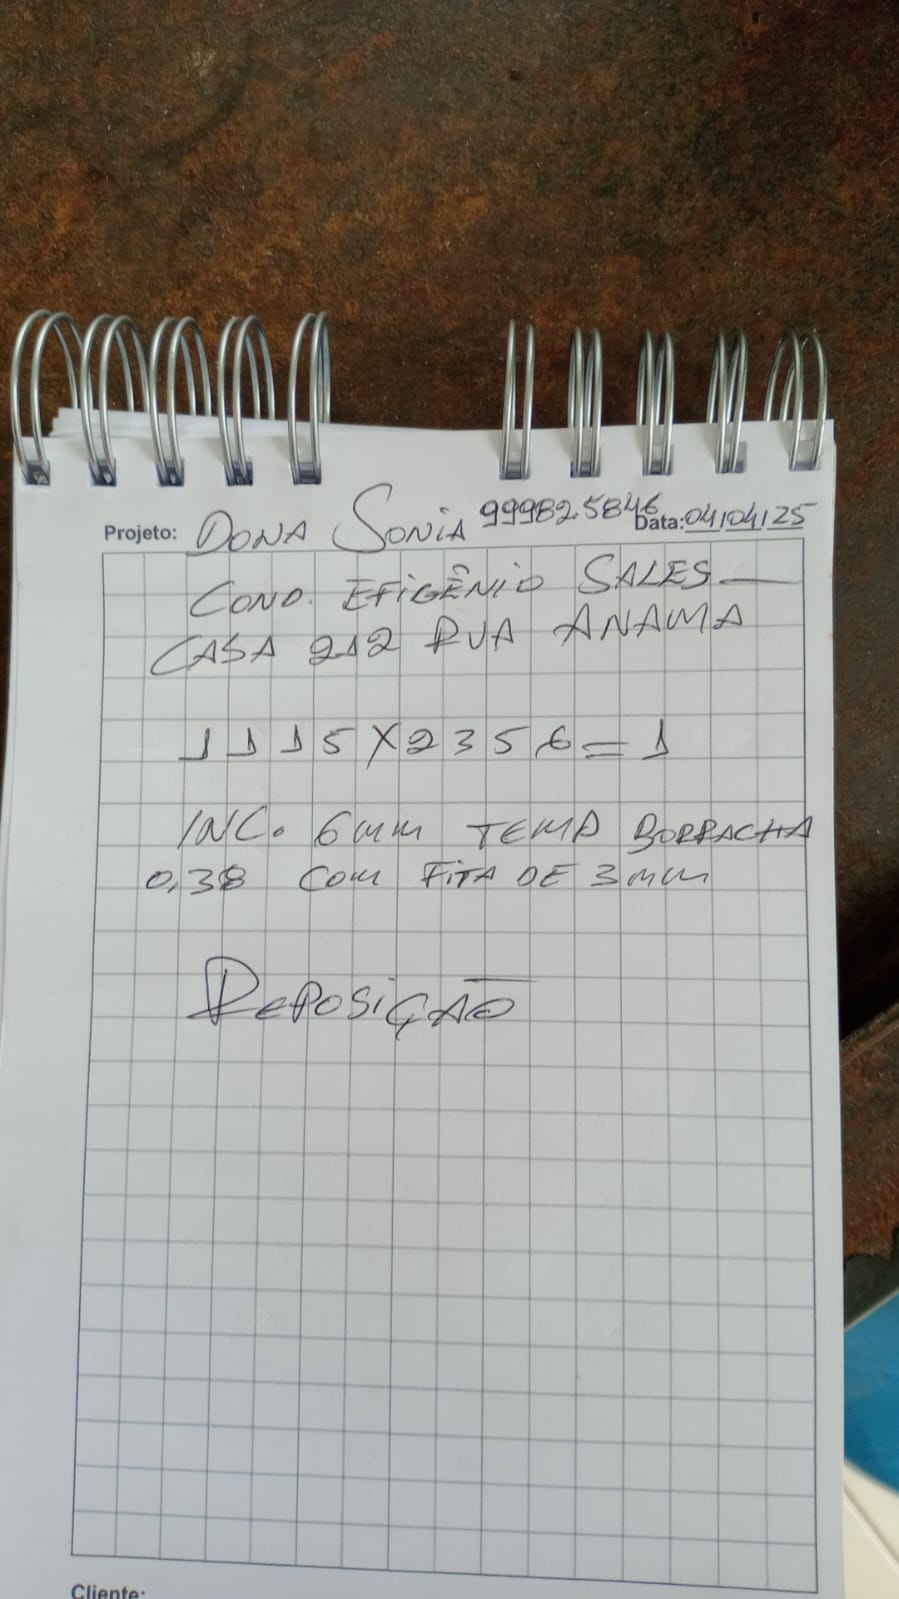 Projeto: DONA SONiA 999825846 Data: 04/04/25
COND. EFiGÊNiO SALES
CASA 212 RUA ANAMA
1115X2356=1
INC. 6mm TEMP BORRACHA
0,38 COM FiTA DE 3mm
REPOSiÇÃO
Cliente: